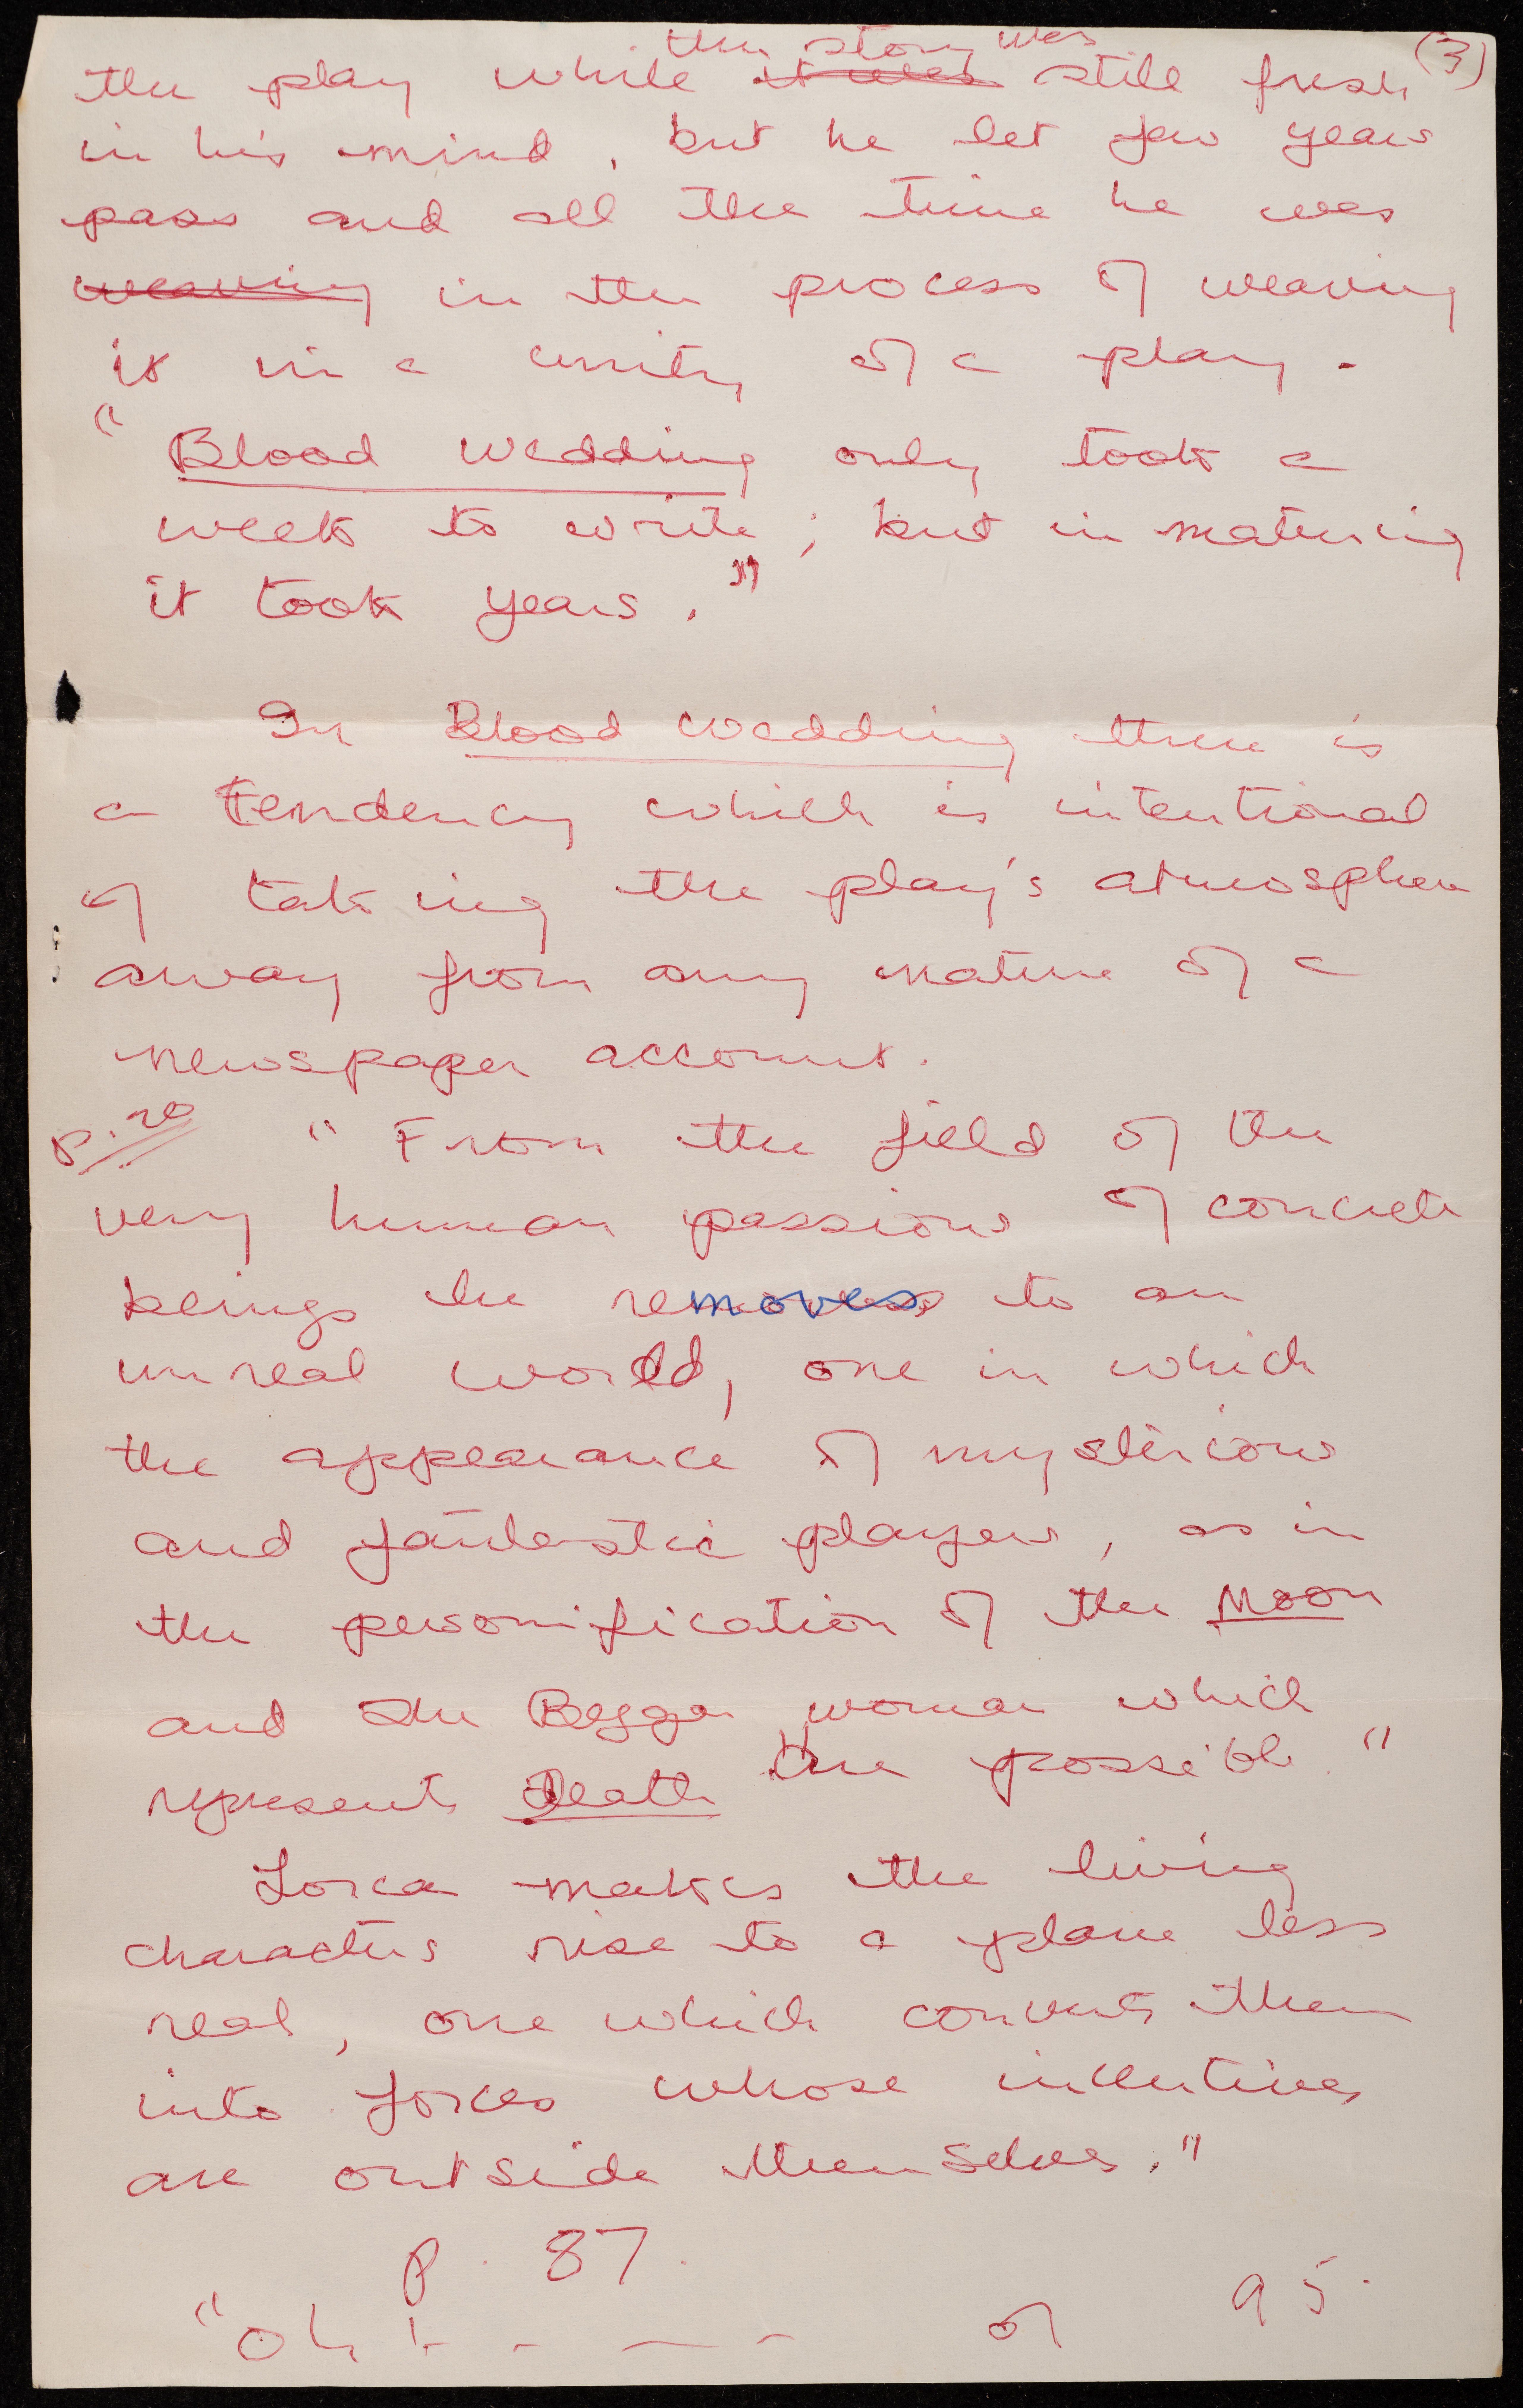 (3)
the story was
the play while it was still fresh
in his mind, but he let few years
pass and all the time he was
weaving in the process of weaving
it in a unity of a play.
"Blood Wedding only took a
week to write; but in maturing
it took years."
In Blood Wedding there is
a tendency which is intentional
of taking the play's atmosphere
away from any nature of a
newspaper account.
p. 20 "From the field of the
very human passions of concrete
beings he removes to an
unreal world, one in which
the appearance of mysterious
and fantastic players, as in
the personification of the Moon
and the Beggar woman which
represents Death are possible."
Lorca makes the living
characters rise to a plane less
real, one which converts them
into forces whose incentives
are outside themselves."
p. 87.
"Oh! - - — - or 95.